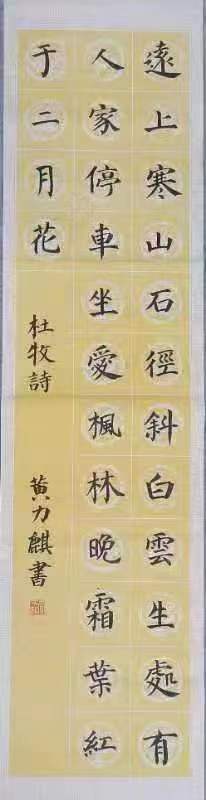 遠上寒山石徑斜白雲生處有
人家停車坐愛楓林晚霜葉紅
于二月花
杜牧詩 黄力麒書